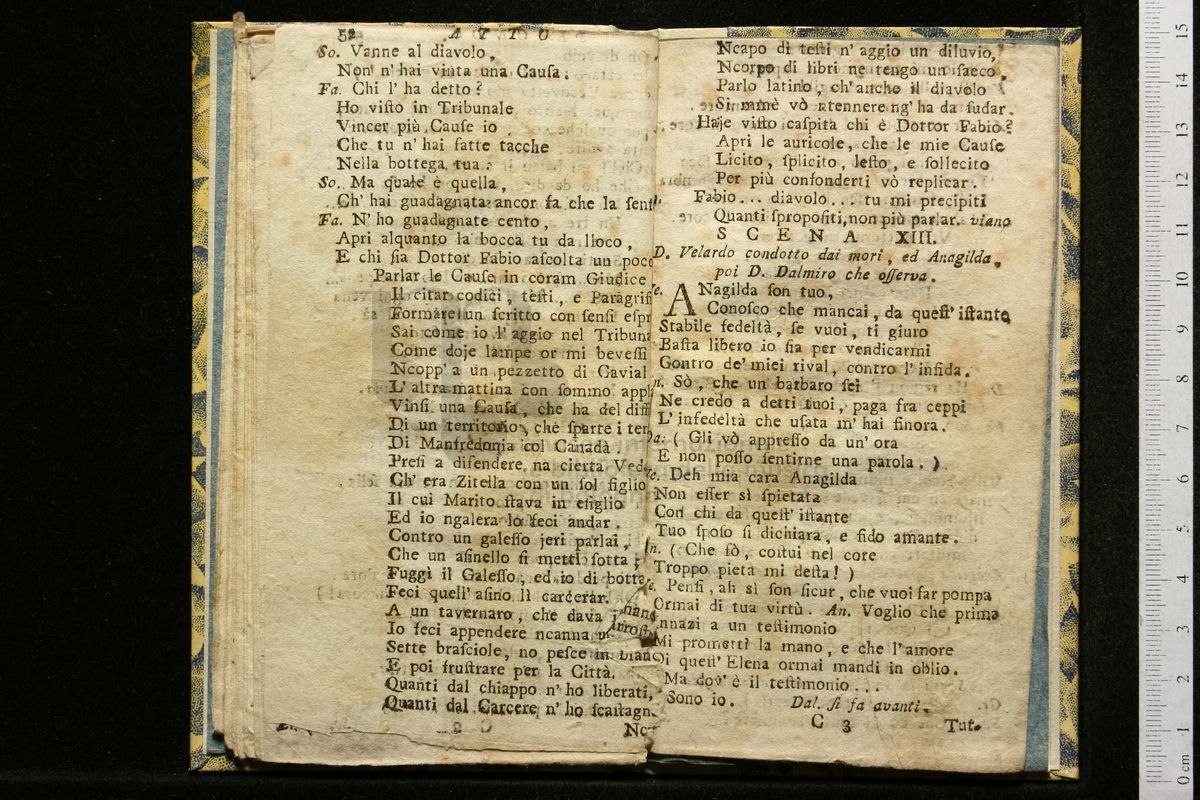 52 ATTO
So. Vanne al diavolo,
Non n' hai vinta una Causa.
Fa. Chi l' ha detto?
Ho visto in Tribunale
Vincer più Cause io
Che tu n' hai fatte tacche
Nella bottega tua.
So. Ma quale è quella,
Ch' hai guadagnata ancor fa che la sent
Fa. N' ho guadagnate cento,
Apri alquanto la bocca tu da lloco,
E chi sia Dottor Fabio ascolta un poco
Parlar le Cause in coram Giudice
Il citar codici, testi, e Paragrifi
Formare un scritto con sensi espr
Sai come io l' aggio nel Tribun
Come doje lampe or mi bevessi
Ncopp' a un pezzetto di Cavial
L' altra mattina con sommo appl
Vinsi una Causa, che ha del diff
Di un territorio, che sparte i ter
Di Manfredonia col Canadà.
Presi a difendere na cierta Ved
Ch' era Zitella con un sol figlio
Il cui Marito stava in esiglio
Ed io ngalera lo feci andar.
Contro un galesso jeri parlai,
Che un asinello si metti sotta;
Fuggì il Galesso, ed io di botta
Feci quell' asino lì carcerar.
A un tavernaro, che dava
Io feci appendere ncanna
Sette brasciole, no pesce in bianc
E poi frustrare per la Città.
Quanti dal chiappo n' ho liberati,
Quanti dal Carcere n' ho scastagn
C 2 Nc
Ncapo di testi n' aggio un diluvio,
Ncorpo di libri ne tengo un sacco,
Parlo latino, ch' anche il diavolo
Si mmè vò ntennere ng' ha da sudar.
Haje visto caspita chi è Dottor Fabio?
Apri le auricole, che le mie Cause
Licito, splicito, lesto, e sollecito
Per più confonderti vò replicar.
Fabio... diavolo... tu mi precipiti
Quanti spropositi, non più parlar. viano
SCENA XIII.
D. Velardo condotto dai mori, ed Anagilda,
poi D. Dalmiro che osserva.
e. ANagilda son tuo,
Conosco che mancai, da quest' istante
Stabile fedeltà, se vuoi, ti giuro
Basta libero io sia per vendicarmi
Contro de' miei rival, contro l' infida.
n. Sò, che un barbaro sei
Ne credo a detti tuoi, paga fra ceppi
L' infedeltà che usata m' hai finora.
Da. ( Gli vò appresso da un' ora
E non posso sentirne una parola. )
e. Deh mia cara Anagilda
Non esser sì spietata
Con chi da quest' istante
Tuo sposo si dichiara, e fido amante.
n. ( Che sò, costui nel core
Troppo pietà mi desta! )
e. Pensi, ah sì son sicur, che vuoi far pompa
Ormai di tua virtù. An. Voglio che prima
nnazi a un testimonio
Mi prometti la mano, e che l' amore
Di quest' Elena ormai mandi in oblio.
Ma dov' è il testimonio...
Sono io. Dal. si fa avanti.
C 3 Tut-